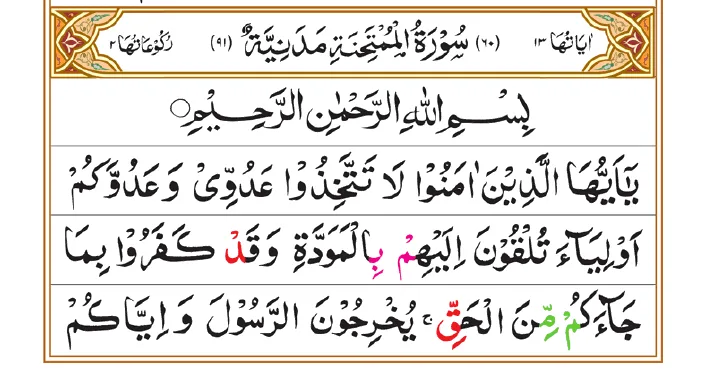 اٰیَاتُهَا ١٣ (٦٠) سُوْرَةُ الْمُمْتَحِنَةِ مَدَنِیَّةٌ (٩١) رُكُوْعَاتُهَا ٢
بِسْمِ اللّٰهِ الرَّحْمٰنِ الرَّحِیْمِ ۝
یٰۤاَیُّهَا الَّذِیْنَ اٰمَنُوْا لَا تَتَّخِذُوْا عَدُوِّیْ وَ عَدُوَّكُمْ
اَوْلِیَآءَ تُلْقُوْنَ اِلَیْهِمْ بِالْمَوَدَّةِ وَ قَدْ كَفَرُوْا بِمَا
جَآءَكُمْ مِّنَ الْحَقِّ ۚ یُخْرِجُوْنَ الرَّسُوْلَ وَ اِیَّاكُمْ